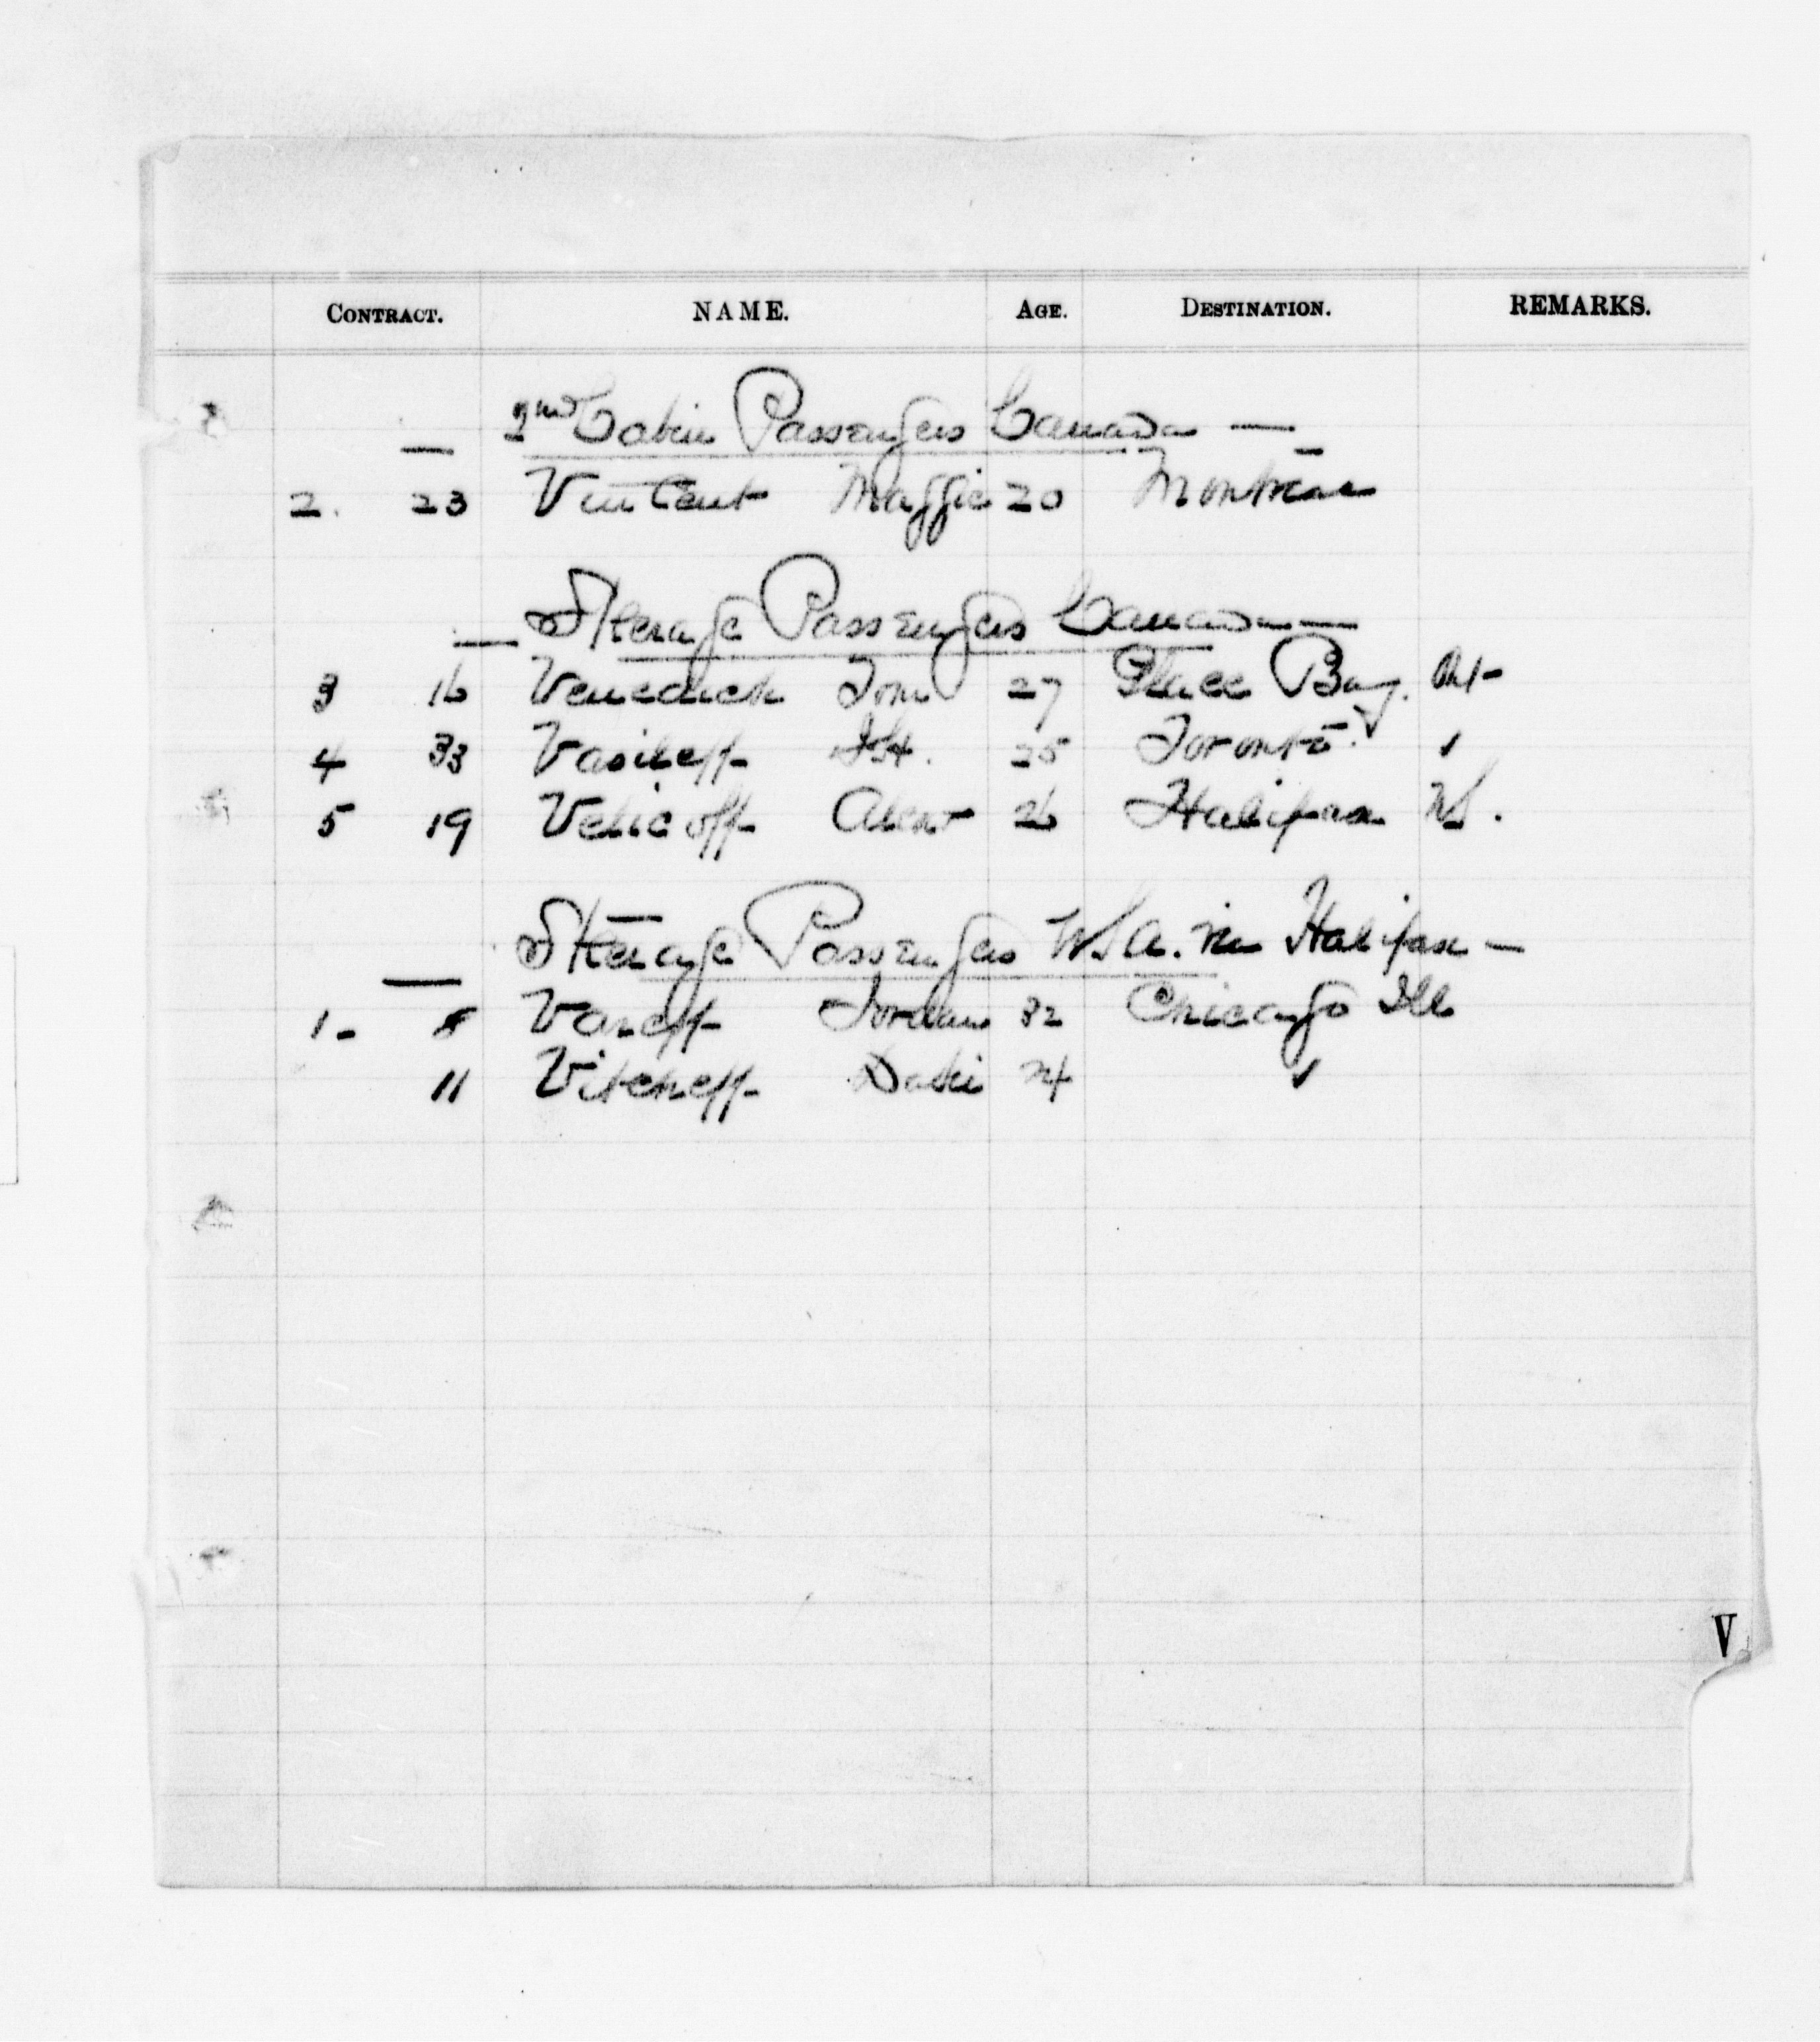 CONTRACT. NAME. AGE. DESTINATION. REMARKS.
2nd Cabin Passengers Canada —
2. 23 Vincent Maggie 20 Montreal
— Steerage Passengers Canada —
3 16 Venedick Tom 27 Glace Bay.
4 33 Vasileff 25 Toronto.
5 19 Velicoff 26 Halifax NS.
— Steerage Passengers USA. via Halifax —
1- 8 Vareff Jordan 32 Chicago Ill
11 Vitcheff 24
V